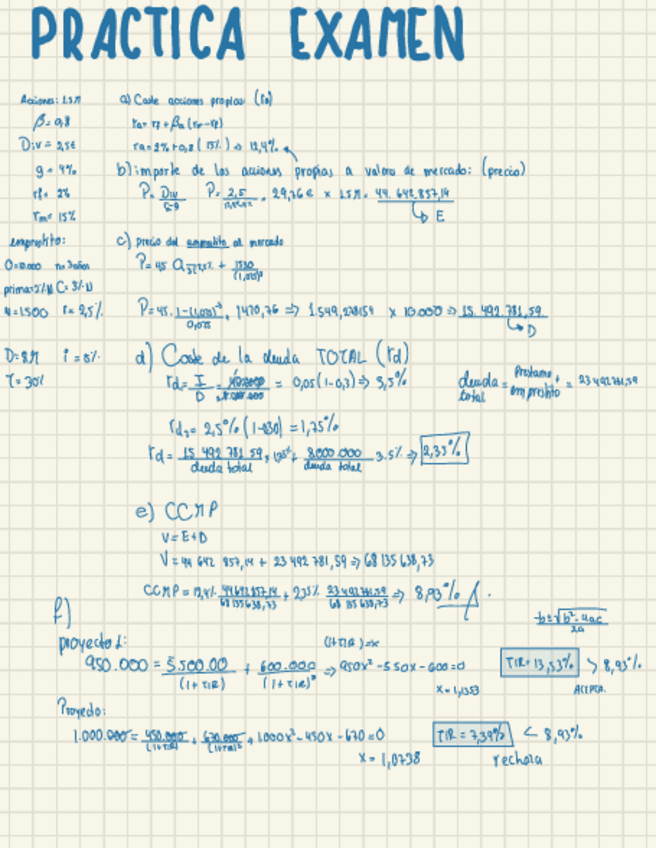 PRACTICA EXAMEN
Acciones: 1.5 M
β = 0,8
Div = 2,5€
g = 4%
rf = 2%
rm = 15%
a) Coste acciones propias (ra)
ra = rf + βa (rm - rf)
ra = 2% + 0,8 ( 15%) ⇒ 12,4%
b) importe de las acciones propias a valora de mercado: (precio)
P = Div / P = 2,5 / = 29,76 € x 1.5 M = 44.642.857,14
↳ E
emprestito:
O = 10.000 n = 3 años
prima = 2% N C = 3% N
N = 1500 r = 2,5%
c) precio del empréstito al mercado
P = 45 a + 1530 / (1,025)³
P = 45 · 1-(1,025)⁻³ / 0,025 + 1420,76 ⇒ 1.549,278159 x 10.000 ⇒ 15.492.781,59
↳ D
D = 8 M i = 5%
T = 30%
d) Coste de la deuda TOTAL (rd)
rd = I / D = / 8.000.000 = 0,05 (1-0,3) ⇒ 3,5%
deuda total = Prestamo + emprestito = 23 492 781,59
rd₂ = 2,5% (1-0,30) = 1,75%
rd = 15 492 781 59 / deuda total · 1,75% + 8.000.000 / deuda total 3.5% ⇒ 2,35%
e) CCMP
V = E + D
V = 44 642 857,14 + 23 492 781,59 ⇒ 68 135 638,73
CCMP = 12,4% 44642857,14 / 68 135 638,73 + 2,35% 23 492 781,59 / 68 135 638,73 ⇒ 8,93%
f)
-b±√b²-4ac / 2a
proyecto 1:
(1+TIR) = x
950.000 = 5.500.00 / (1+TIR) + 600.000 / (1+TIR)² ⇒ 950x² - 550x - 600 = 0
TIR = 13,53% > 8,93%
x = 1,1353
ACEPTA.
Proyecto:
1.000.000 = 450.000 / (1+TIR) + 670.000 / (1+TIR)² + 1000x² - 450x - 670 = 0
TIR = 7,38% < 8,93%
x = 1,0738
rechaza